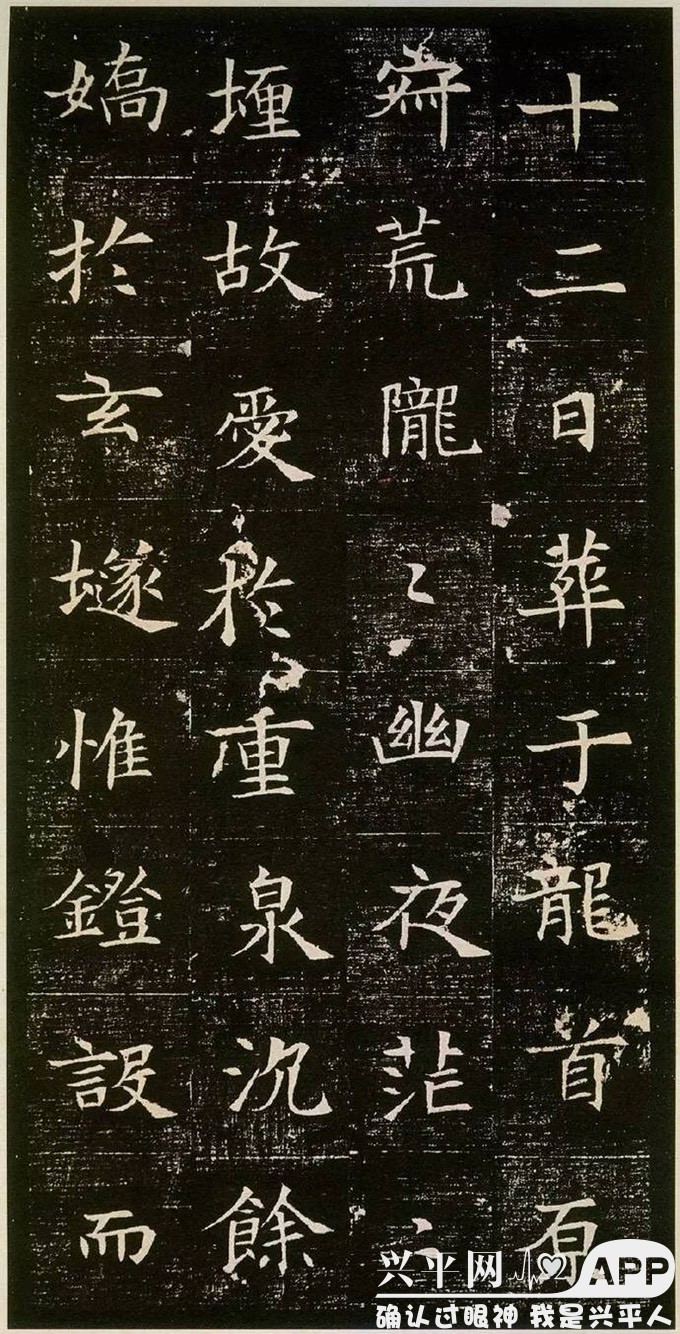 十二日葬于龍首原
寂荒隴〻幽夜茫〻
堙故愛於重泉沉餘
嬌於玄墜惟鐙設而
兴平网 APP
确认过眼神 我是兴平人